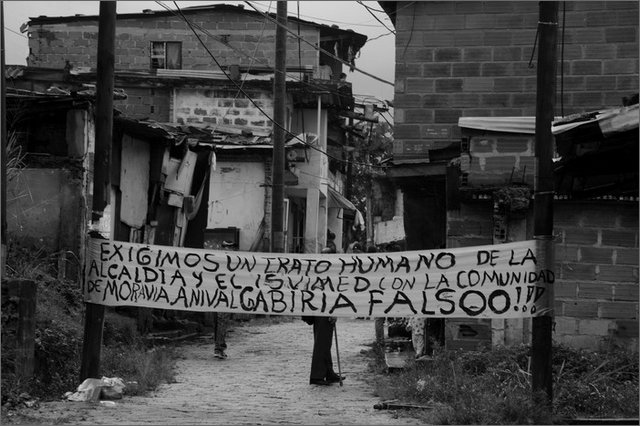 EXIGIMOS UN TRATO HUMANO DE LA
ALCALDIA Y EL ISVIMED CON LA COMUNIDAD
DE MORAVIA, ANIVAL GABIRIA FALSOO!!!